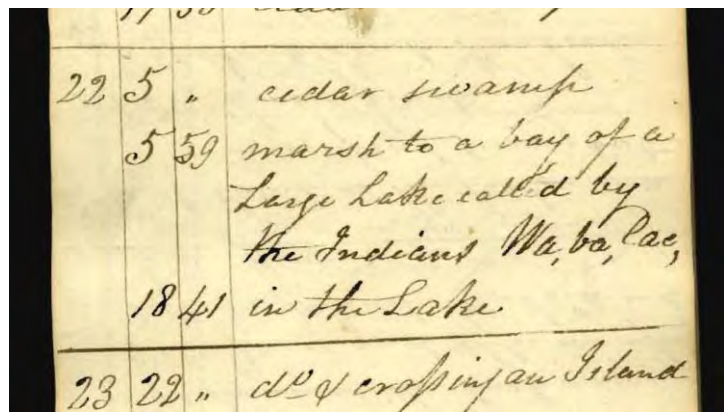 17 55
22 5 " cedar swamp
5 59 marsh to a bay of a
Large Lake called by
the Indians Wa,ba,Cac,
18 41 in the Lake
23 22 " do & crossing an Island